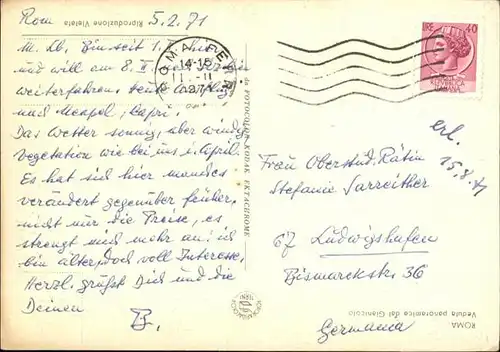 Rom 5.2.71
M. Lb. Bin seit 1.
und will am 8.II.
weiterfahren. heute
und Neapel, Capri.
Das Wetter sonnig, aber windig
Vegetation wie bei uns i. April.
Es hat sich hier manches
verändert gegenüber früher,
nicht nur die Preise, es
strengt mich mehr an! ich
bin älter, doch voll Interesse.
Herzl. grüßt Dich und die
Deinen
B.
Riproduzione Vietata
ROMA FERR.
14-15
1971
da FOTOCOLOR KODAK EKTACHROME
LIRE 40
ITALIANA
erl.
15.2.71
Frau Oberstud. Rätin
Stefanie Sarreither
67 Ludwigshafen
Bismarckstr. 36
Germania
ROMA
Veduta panoramica dal Gianicolo